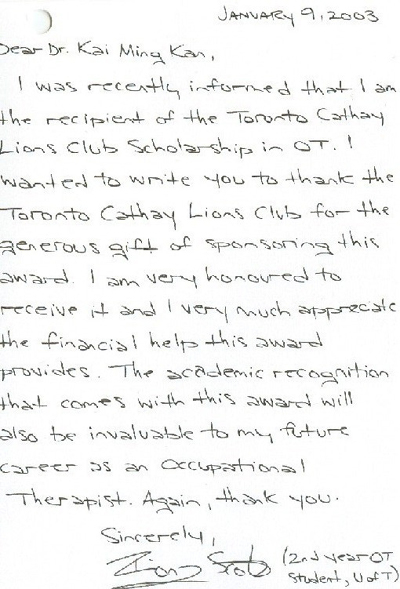 JANUARY 9, 2003
Dear Dr. Kai Ming Kan,
I was recently informed that I am
the recipient of the Toronto Cathay
Lions Club Scholarship in OT. I
wanted to write you to thank the
Toronto Cathay Lions Club for the
generous gift of sponsoring this
award. I am very honoured to
receive it and I very much appreciate
the financial help this award
provides. The academic recognition
that comes with this award will
also be invaluable to my future
career as an Occupational
Therapist. Again, thank you.
Sincerely,
(2nd year OT
student, U of T)